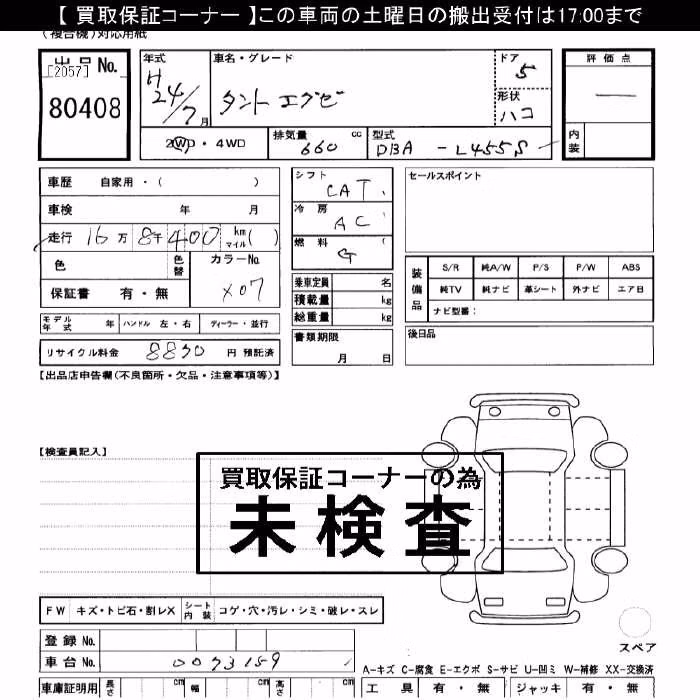 【 買取保証コーナー 】この車両の土曜日の搬出受付は17:00まで
(複合機)対応用紙
出品No. [2057] 80408
年式 H24/7月
車名・グレード タント エグゼ
ドア 5
形状 ハコ
評価点 —
内装
2WD・4WD
排気量 660 cc
型式 DBA - L455S
車歴 自家用・( )
車検 年 月
走行 16万8千400 km マイル( )
色 色替 カラーNo. X07
保証書 有・無
シフト CAT
冷房 AC
燃料 G (
乗車定員 名
積載量 kg
総重量 kg
セールスポイント
装備品 S/R 純A/W P/S P/W ABS
純TV 純ナビ 革シート 外ナビ エア日
ナビ型番:
モデル年式 年 ハンドル 左・右 ディーラー・並行
書類期限 月 日
後日品
リサイクル料金 8830 円 預託済
【出品店申告欄(不良箇所・欠品・注意事項等)】
【検査員記入】
買取保証コーナーの為
未検査
FW キズ・トビ石・割レX シート内装 コゲ・穴・汚レ・シミ・破レ・スレ
登録 No.
車台 No. 0073159
スペア
A-キズ C-腐食 E-エクボ S-サビ U-凹ミ W-補修 XX-交換済
車庫証明用 長さ cm 幅 cm 高さ cm
工具 有・無 ジャッキ 有・無